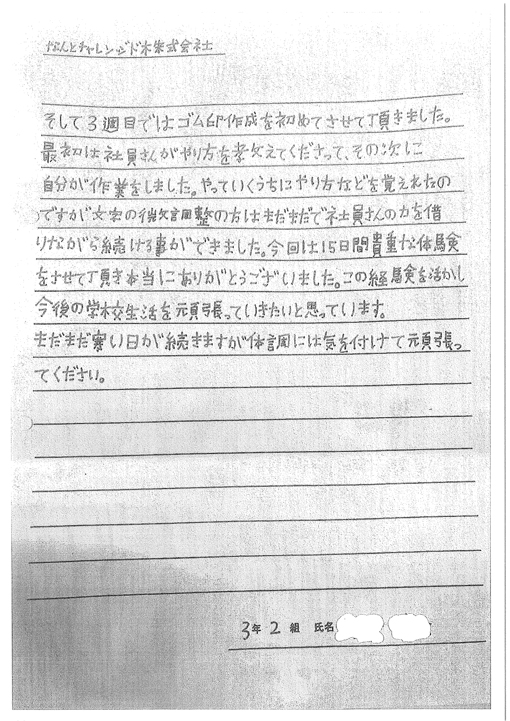 なんとチャレンジド木朱式会社
そして3週目ではゴム印作成を初めてさせて頂きました。
最初は社員さんがやり方を教えてくださって、その次に
自分が作業をしました。やっていくうちにやり方などを覚えれたの
ですが文字の微調整の方はまだまだで社員さんの力を借
りながら続ける事ができました。今回は15日間貴重な体験
をさせて頂き本当にありがとうございました。この経験を活かし
今後の学校生活を頑張っていきたいと思っています。
まだまだ寒い日が続きますが体調には気を付けて頑張っ
てください。
3年 2 組 氏名